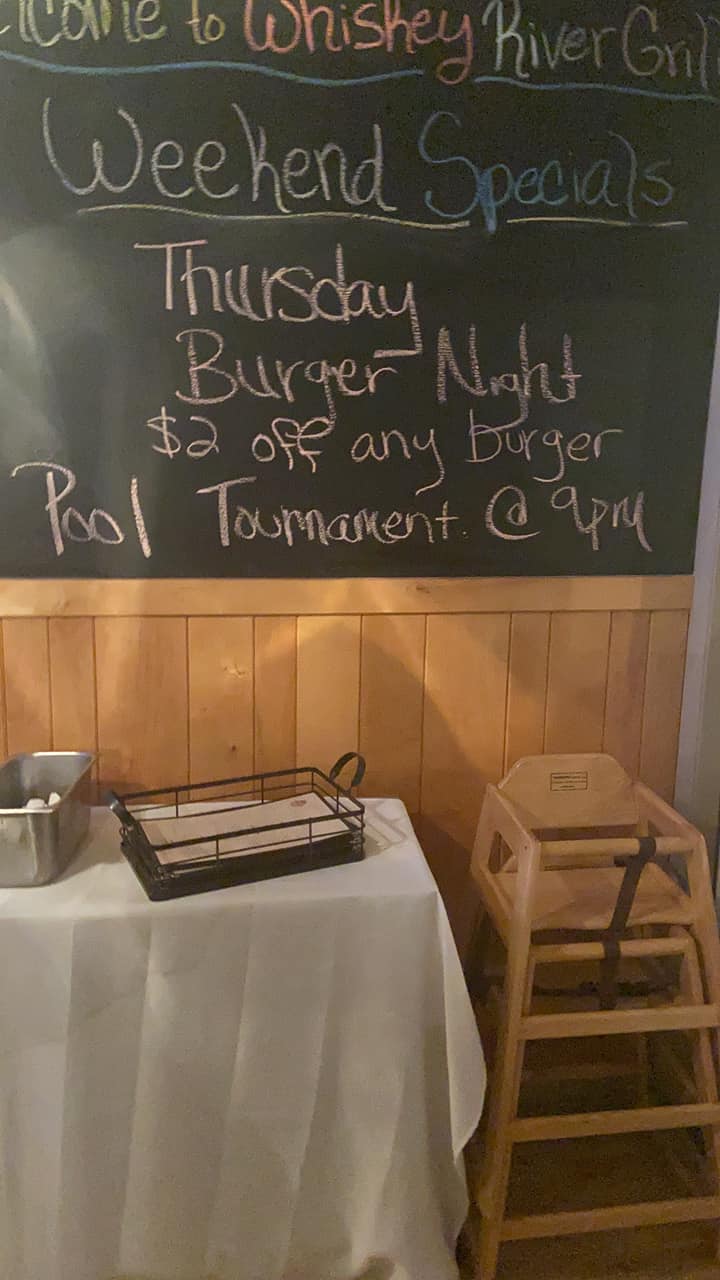 elcome to Whiskey River Gril
Weekend Specials
Thursday
Burger Night
$2 off any burger
Pool Tournament. @ 9pm